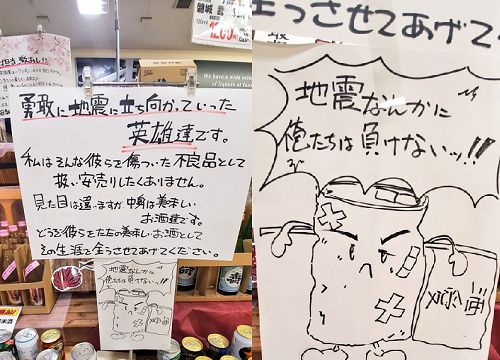 勇敢に地震に立ち向かっていった
英雄達です。
私はそんな彼らを傷ついた不良品として
扱い安売りしたくありません。
見た目は違いますが中身は美味しい
お酒達です。
どうぞ彼らをただの美味しいお酒として
その生涯を全うさせてあげてください。
地震なんかに
俺たちは負けないッ!!
全うさせてあげてく
地震なんかに
俺たちは負けないッ!!
We have a wide